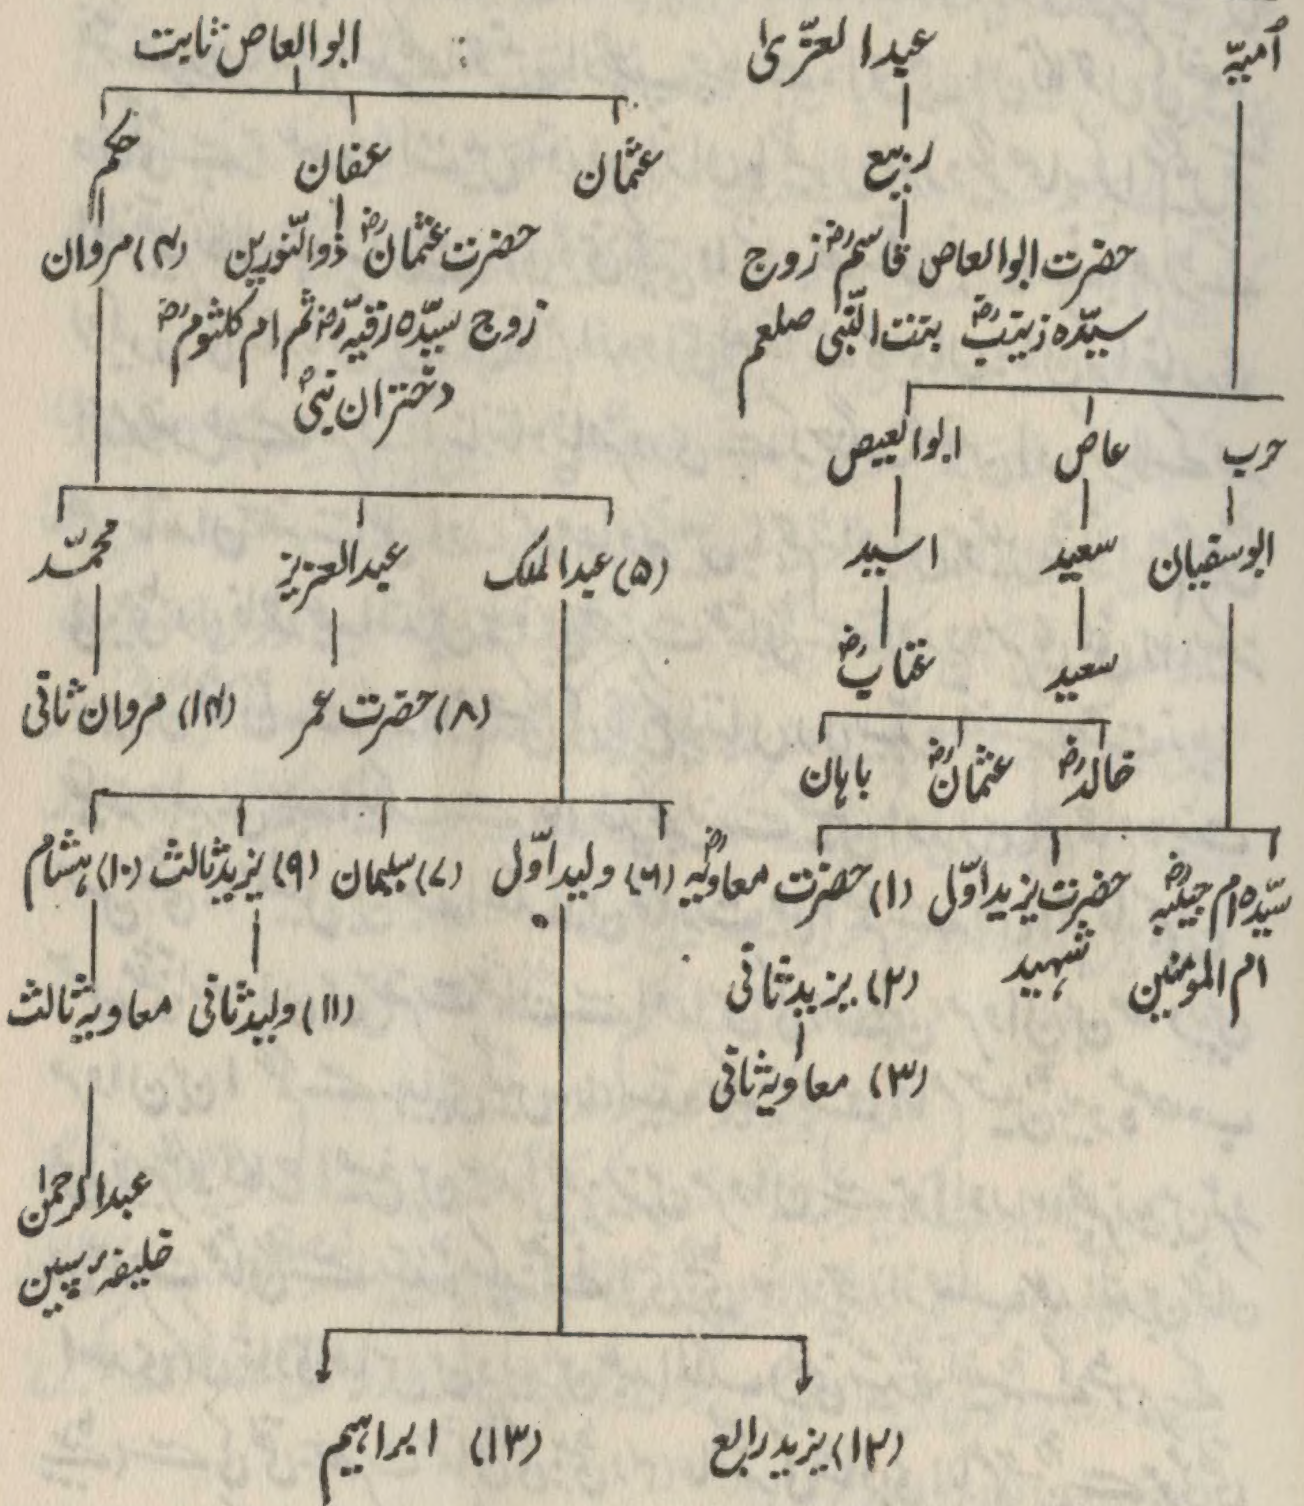 اُمیّہ
عبدالعزّیٰ
ابوالعاص ثابت
ربیع
عثمان
عفان
حکم
حضرت ابوالعاص قاسمؓ زوج
سیّدہ زینبؓ بنت النّبی صلعم
حضرت عثمانؓ ذوالنّورین
زوج سیّدہ رقیّہؓ ثم ام کلثومؓ
دختران نبیؐ
(۴) مروان
حرب
عاص
ابوالعیص
ابوسفیان
سعید
اسید
(۵) عبدالملک
عبدالعزیز
محمّد
سعید
عتابؓ
(۸) حضرت عمر
(۱۴) مروان ثانی
خالدؓ
عثمانؓ
باہان
سیّدہ ام حبیبہؓ
ام المومنین
حضرت یزید اوّل
شہید
(۱) حضرت معاویہؓ
(۲) یزید ثانی
(۳) معاویہ ثانی
(۶) ولید اوّل
(۷) سلیمان
(۹) یزید ثالث
(۱۰) ہشام
(۱۱) ولید ثانی
معاویہ ثالث
عبدالرحمٰن
خلیفہ سپین
(۱۲) یزید رابع
(۱۳) ابراہیم